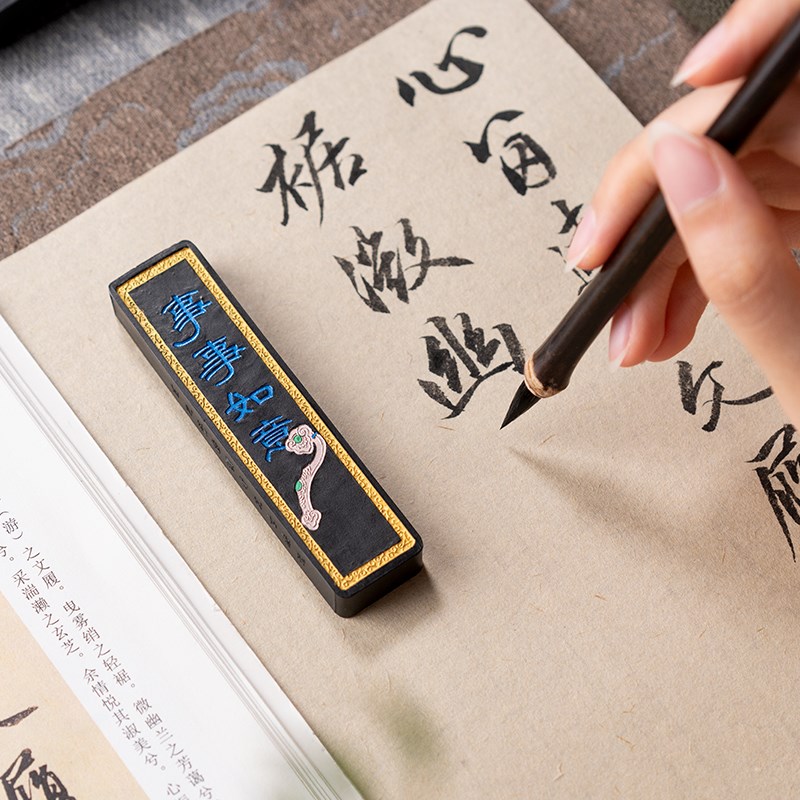 文履
心
裾微幽
事事如意
（游）之文履。曳雾绡之轻裾。微幽兰之芳蔼兮
兮。采湍濑之玄芝。余情悦其淑美兮。心